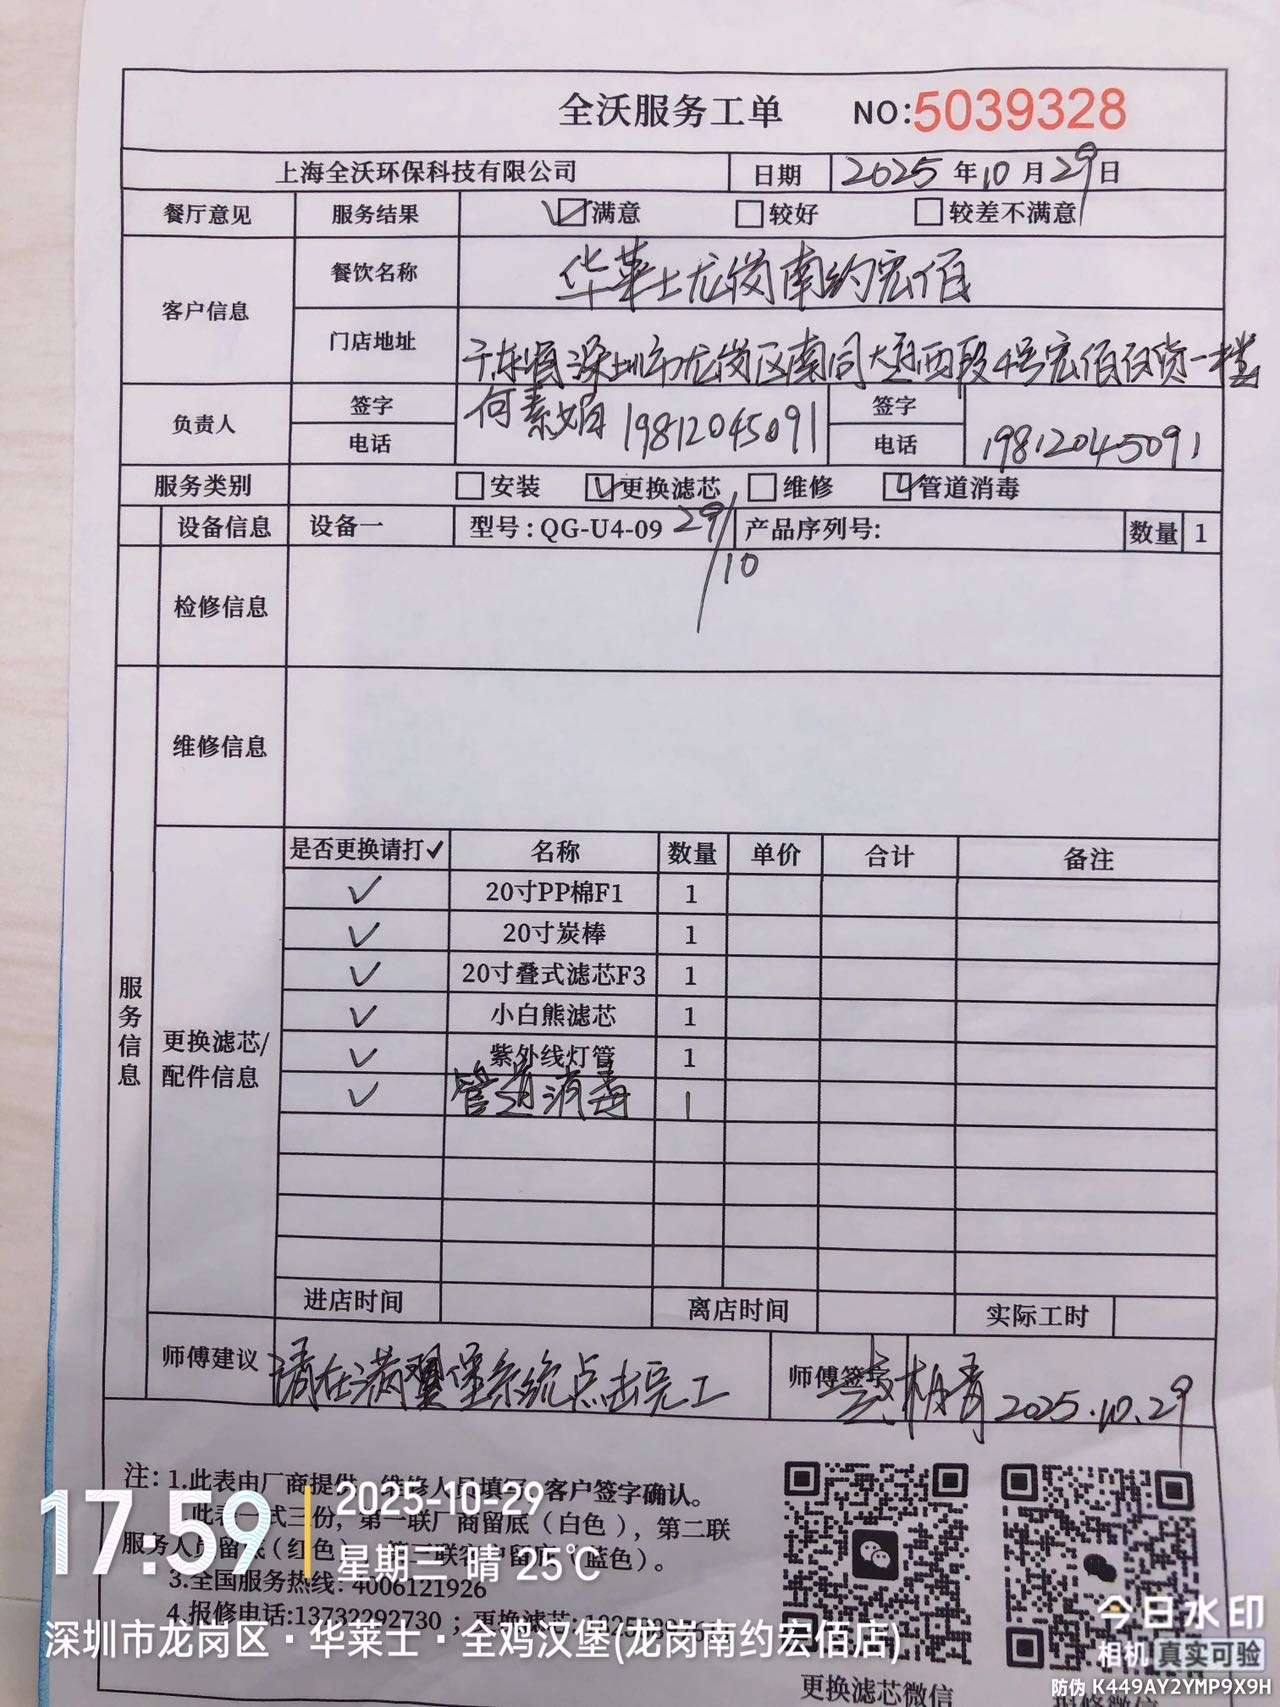 全沃服务工单 NO:5039328
上海全沃环保科技有限公司 日期 2025年10月29日
餐厅意见 服务结果 满意 较好 较差不满意
客户信息 餐饮名称 华莱士龙岗南约宏佰
门店地址 广东省深圳市龙岗区南同大道西段4号宏佰百货一楼
负责人 签字 何素娟 签字
电话 19812045091 电话 19812045091
服务类别 安装 更换滤芯 维修 管道消毒
设备信息 设备一 型号:QG-U4-09 29/10 产品序列号: 数量 1
检修信息
维修信息
服务信息
更换滤芯/配件信息
是否更换请打✓ 名称 数量 单价 合计 备注
✓ 20寸PP棉F1 1
✓ 20寸炭棒 1
✓ 20寸叠式滤芯F3 1
✓ 小白熊滤芯 1
✓ 紫外线灯管 1
✓ 管道消毒 1
进店时间 离店时间 实际工时
师傅建议 请在满翼堡系统点击完工 师傅签字 2025.10.29
注:1.此表由厂商提供,维修人员填写,客户签字确认。
此表一式三份,第一联厂商留底(白色),第二联
服务人员留底(红色),第三联客户留底(蓝色)。
3.全国服务热线:4006121926
4.报修电话:13732292730;更换滤芯:
更换滤芯微信 报修微信
17:59 2025-10-29
星期三 晴 25℃
深圳市龙岗区·华莱士·全鸡汉堡(龙岗南约宏佰店)
今日水印
相机 真实可验
防伪 K449AY2YMP9X9H